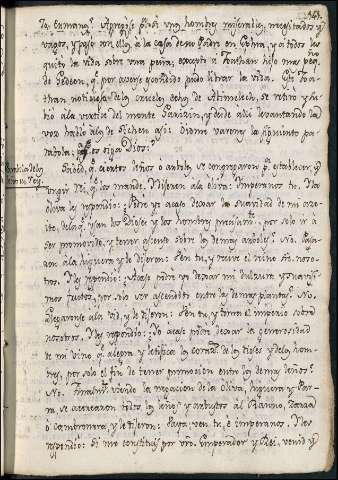 ta, enmana? Apregose p.s de unos hombres miserables, necesitados y
vagos, y paso con ellos à la casa de su Padre en Ephra, y a todos les
quito la vida sobre una peña; excepto à Joathan hijo mas peq.
de Gedeon, q.e por averse escondido pudo librar la vida. Este Joa-
than noticioso de los crueles echos de Abimelech, se retiro y su-
bió ala vertice del monte Garazin, y desde alli levantando la
voz habló alos de Sichen así: Oidme varones la siguiente pa-
rabola; os oiga Dios:
Parabola de los
Sabed, q.e ciertos leños ó arboles, se congregaron p.a establecer, y
ungir Rei, q.e los mande. Dijeron ala oliva: Imperanos tu. La
oliva les respondio: Podre yo acaso dexar la suavidad de mi acei-
te, dela q.e usan los Dioses y los hombres, por solo ir à
ser promovida, y tener ascenso sobre los demas arboles? No. Pasa-
ron ala higuera y le dijeron: Ven tu, y recive el reino sre. noso-
tros. Les respondio: Acaso podre yo dexar mi dulzura y suavisi-
mos frutos, por solo ser ascendido entre las demas plantas? No.
Llegaronse ala vid, y le dijeron: Ven tu, y toma el imperio sobre
nosotros. Les respondio: Yo acaso podre dexar la generosidad
de mi vino q.e alegra y letifica los coraz.s de los dioses y delos hom-
bres, por solo el fin de tener promocion entre los demas leños?
No. Finalm.te viendo la negacion de la Oliva, higuera y Par-
ra, se acercaron todos los leños y arbustos al Ramno, Zarza
ò cambronera, y le dijeron: Vaya, ven tu, è imperanos. Les
respondio: Si me constituis por vro. Emperador y Rei, venid y